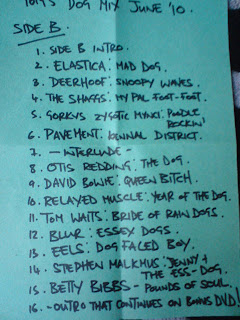 DOG MIX JUNE '10.
SIDE B.
1. SIDE B INTRO.
2. ELASTICA: MAD DOG.
3. DEERHOOF: SNOOPY WAVES.
4. THE SHAGGS: MY PAL FOOT-FOOT.
5. GORKYS ZYGOTIC MYNCI: POODLE
ROCKIN'
6. PAVEMENT: KENNAL DISTRICT.
7. - INTERLUDE -
8. OTIS REDDING: THE DOG.
9. DAVID BOWIE: QUEEN BITCH.
10. RELAXED MUSCLE: YEAR OF THE DOG.
11. TOM WAITS: BRIDE OF RAIN DOGS.
12. BLUR: ESSEX DOGS.
13. EELS: DOG FACED BOY.
14. STEPHEN MALKMUS: JENNY +
THE ESS-DOG.
15. BETTY BIBBS - POUNDS OF SOUL.
16. - OUTRO THAT CONTINUES ON BONUS DVD!